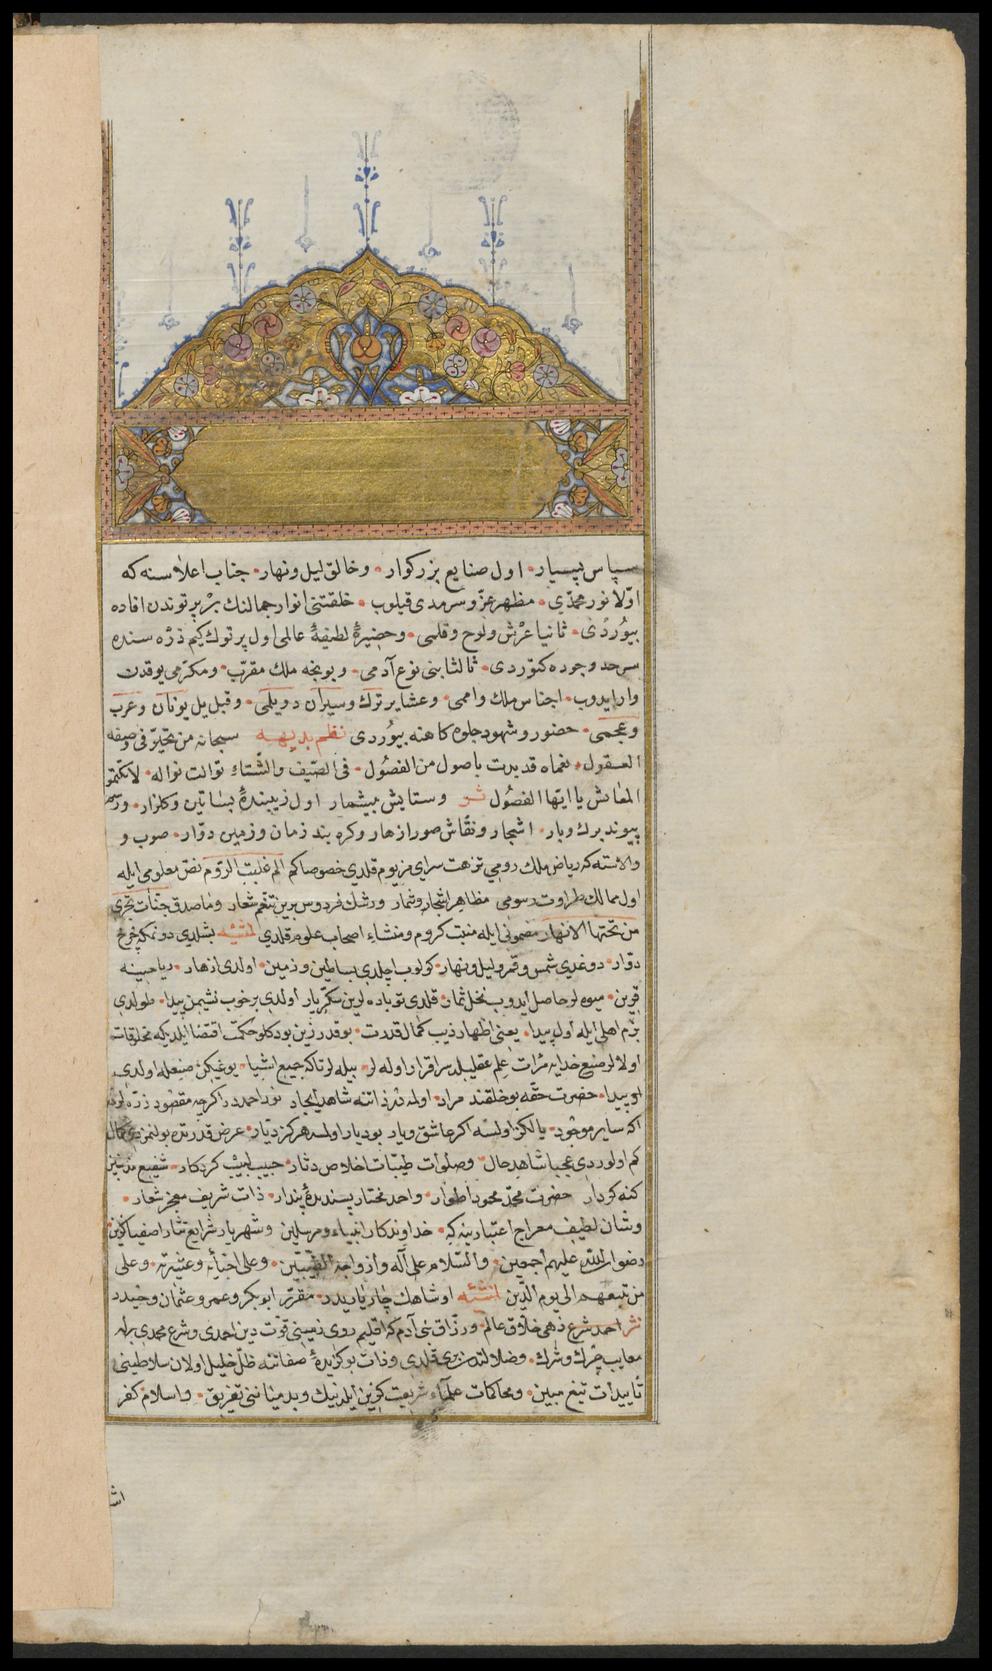 سپاس بیسیار اول صنایع بزرکوار وخالق لیل ونهار جناب اعلاسنه که
اوّلا نور محمّدی مظهر عزّ وسرمدی قیلوب خلقتنی انوار جمالنك بر پرتوندن افاده
بیوردی ثانیا عرش ولوح وقلمی وحضیرۀ لطیفۀ عالمی اول پرتوك کیم ذرّه سنده
سرحد وجوده کتوردی ثالثا بنی نوع آدمی وبونجه ملك مقرّب ومکرّمی یوقدن
وار ایدوب اجناس ملك واممی وعشایر ترك وسیران دویلمی وقبل یل یونان وعرب
وعجمی حضور وشهود جلوه کاهنه بیوردی نظم بدیهه سبحانه من تحیّر فی وصفه
العقول نعماه قدیرت باصول من الفصول فی الصّیف والشّتاء توالت نواله لاتکتموا
المعاش یا ایتها الفصول نثر وستایش بیشمار اول زیبندۀ بساتین وکلزار
پیوند برك وبار اشجار ونقّاش صور ازهار وکره بند زمان وزمین دوّار صوب و
والاسنه که ریاض ملك رومی نزهت سرای مرز بوم قلدی خصوصا کم الم غلبت الرّوم نصّ معلومی ایله
اول ممالك طراوت رسومی مظاهر اشجار وثمار ورشك فردوس برین تنعّم شعار وماصدق جنّات تجری
من تحتها الانهار مضمونی ایله منبت کروم ومنشاء اصحاب علوم قلدی لمنشئه بشلدی دونمکه چرخ
دوّار دوغدی شمس وقمر ولیل ونهار کولوب اچلدی بساطین وزمین اولدی ازهار ریاحینه
قرین میوه لر حاصل ایدوب نخل ثمار قلدی نوباده لرین سکّر یار اولدی برخوب نشیمن پیدا طولدی
بزم اهلی ایله اول پیدا یعنی اظهار ذیب کمال قدرت بوقدر زین بودکلو حکمت اقتضا ایلدیکه مخلوقات
اولالر صنع خدایه مرأت علم عقلیلد سراقرار اوله لر بیله لر تاکه جمیع اشیا یوغیکن صنعله اولدی
لو پیدا حضرت حقّه بو خلقتد مراد اولدر ذاتنه شاهد ایجاد نور احمددر اکرچه مقصود ذرّه لردر
اکه سایر موجود یالکز اولسه اکر عاشق ویار بودیار اولسه هرکز دیّار عرض قدرتده بولنمزدی کمال
کم اولوردی عجبا شاهد حال وصلوات طیّبات اخلاص دثار حبیب لبیب کردکار شفیع مذنبین
کنه کردار حضرت محمّد محمود اطوار واحمد مختار پسندیدۀ پندار ذات شریف معجز شعار
وشان لطیف معراج اعتبارینه که خداوندکار انبیاء ومرسلین وشهریار شرایع نثار اصفیا کزین
رضوان الله علیهم اجمعین والسّلام علی آله وازواجه الطّیّبین وعلی احبّائه وعشیرته وعلی
من تبعهم الی یوم الدّین لمنشئه اوشاهك چار یاریدر مقرّر ابوبکر وعمر وعثمان وحیدر
نثر احمد شرع ذهی خلّاق عالم ورزّاق بنی آدم که اقلیم روی زمینی قوّت دین احمدی وشرع محمّدی برله
معایب چرك وشرك وضلالتدن بری قلدی وذات بو کزیدۀ صفاتنه ظلّ خلیل اولان سلاطینی
تأییدات تیغ مبین ومحاکمات علماء شریعت کزین ایلد نیك وبد میاننی تفریق واسلام کفر